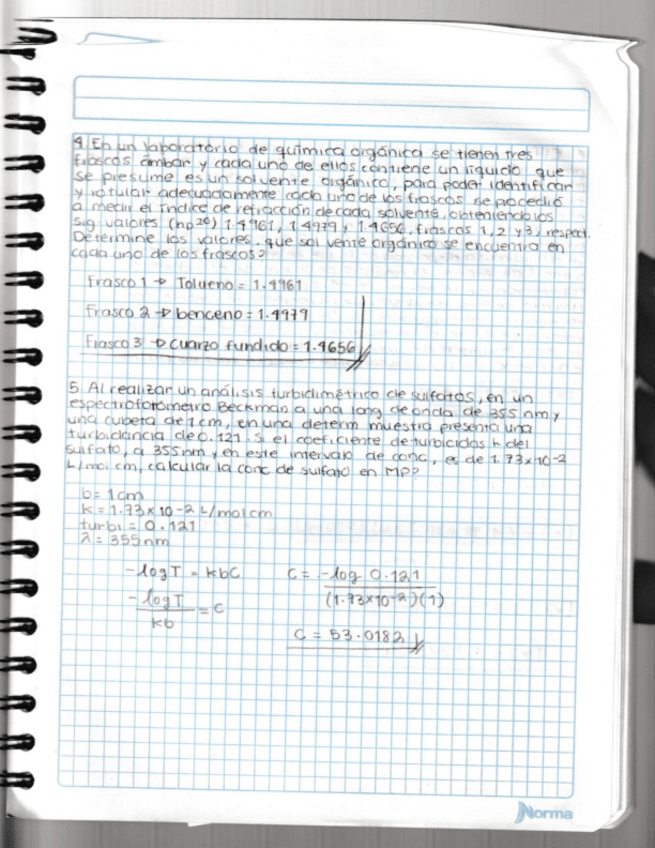 4. En un laboratorio de química orgánica se tienen tres
frascos ámbar y cada uno de ellos contiene un líquido que
se presume es un solvente orgánico, para poder identificar
y rotular adecuadamente cada uno de los frascos se procedió
a medir el índice de refracción de cada solvente, obteniendo los
sig valores (nD20) 1.4961, 1.4979 y 1.4656, frascos 1, 2 y 3, respect.
Determine los valores, que solvente orgánico se encuentra en
cada uno de los frascos?
Frasco 1 → Tolueno = 1.4961
Frasco 2 → benceno = 1.4979
Frasco 3 → cuarzo fundido = 1.4656
5. Al realizar un análisis turbidimétrico de sulfatos, en un
espectrofotómetro Beckman a una long de onda de 355 nm y
una cubeta de 1cm, en una determ muestra presenta una
turbidancia de 0.121. Si el coeficiente de turbicidas k del
sulfato, a 355nm y en este intervalo de conc, es de 1.73x10-2
L/mol cm, calcular la conc de sulfato en MP?
b= 1cm
k = 1.73x10-2 L/mol cm
turbi = 0.121
λ = 355nm
-logT = kbC
-logT / kb = C
C = -log 0.121 / (1.73x10-2)(1)
C = 53.0182
Norma